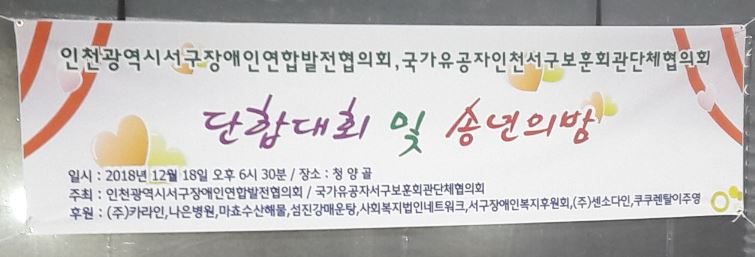 인천광역시서구장애인연합발전협의회,국가유공자인천서구보훈회관단체협의회
단합대회 및 송년의밤
일시 : 2018년 12월 18일 오후 6시 30분 / 장소 : 청양골
주최 : 인천광역시서구장애인연합발전협의회 / 국가유공자서구보훈회관단체협의회
후원 : (주)카라인,나은병원,마효수산해물,섬진강매운탕,사회복지법인네트워크,서구장애인복지후원회,(주)센소다인,쿠쿠렌탈이주영